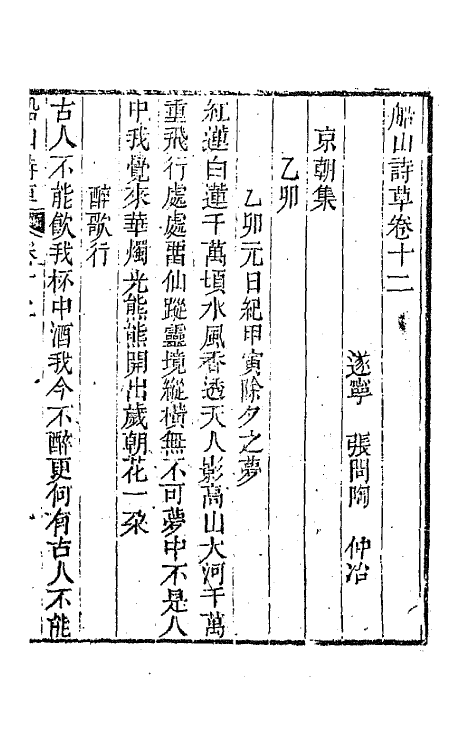 船山詩草卷十二
遂寧 張問陶 仲冶
京朝集
乙卯
乙卯元日紀甲寅除夕之夢
紅蓮白蓮千萬頃水風香透天人影高山大河千萬
重飛行處處畱仙蹤靈境縱橫無不可夢中不是人
中我覺來華燭光熊熊開出歲朝花一朶
醉歌行
古人不能飲我杯中酒我今不醉更何有古人不能
船山詩草 卷十二